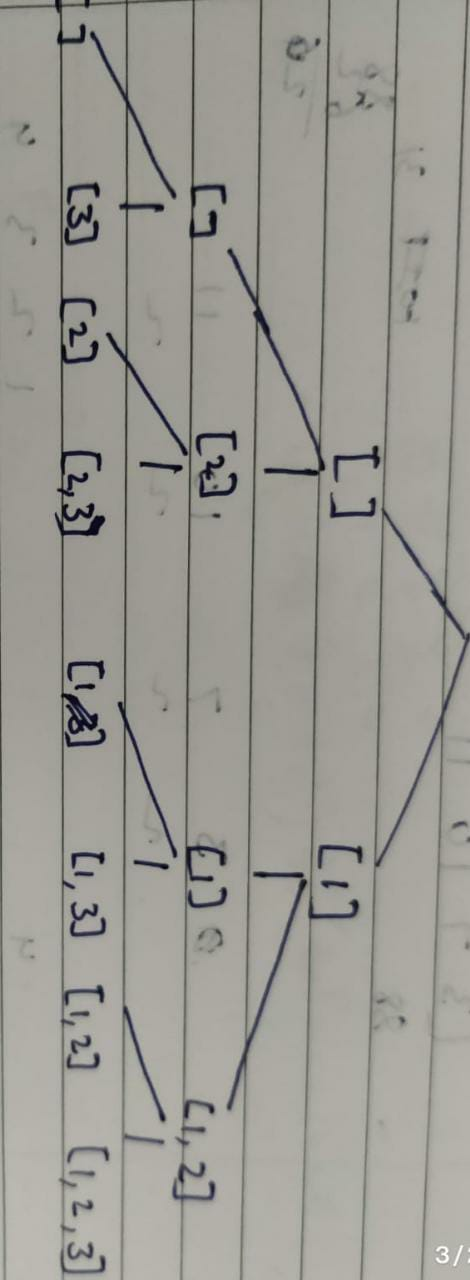 [ ] [1]
[ ] [2] [1] [1,2]
[ ] [3] [2] [2,3] [1] [1,3] [1,2] [1,2,3]